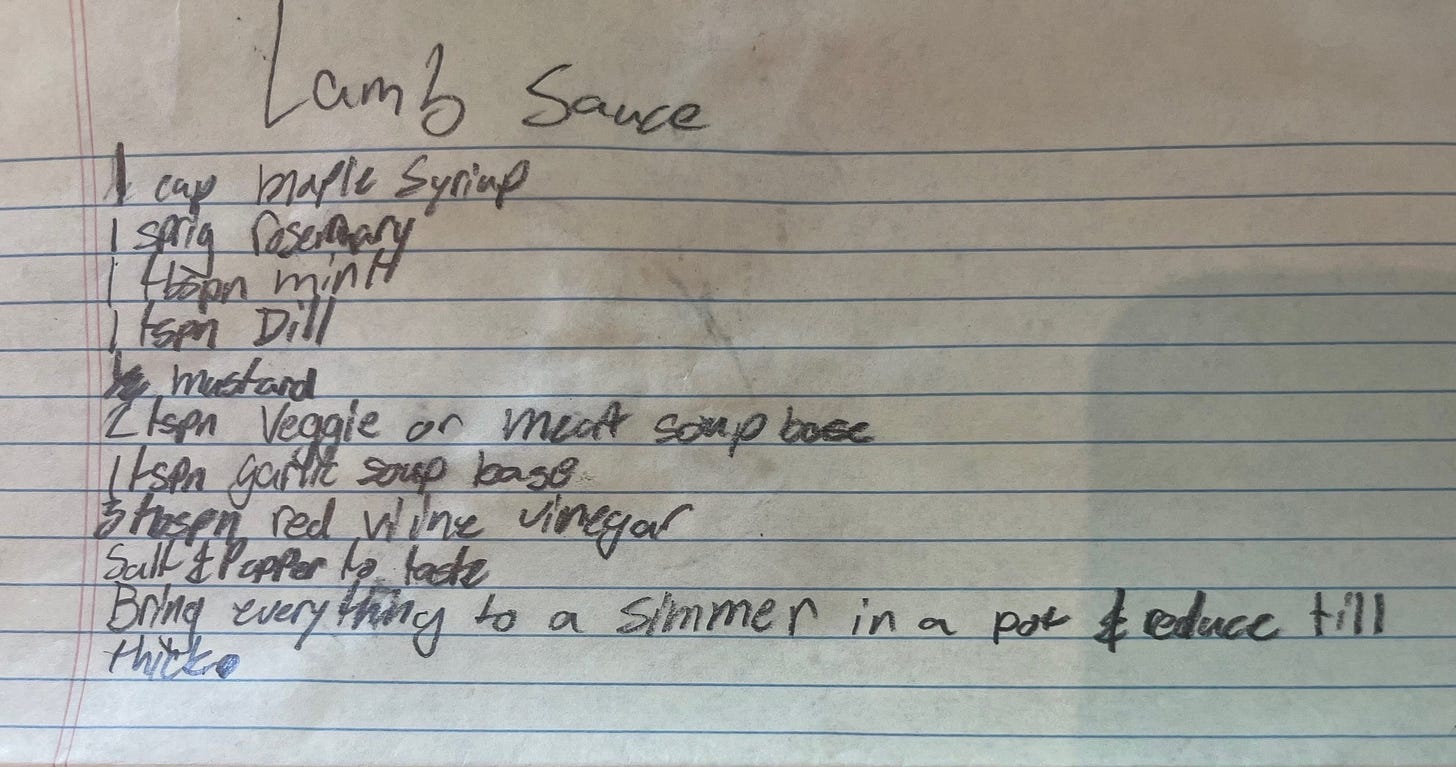 Lamb Sauce
1 cap maple Syriup
1 sprig rosemary
1 tbspn mint
1 tspn Dill
mustard
2 tspn Veggie or meat soup base
1 tspn garlic soup base
3 tbspn red wine vinegar
Salt & Papper to taste
Bring everything to a simmer in a pot & reduce till
thick.